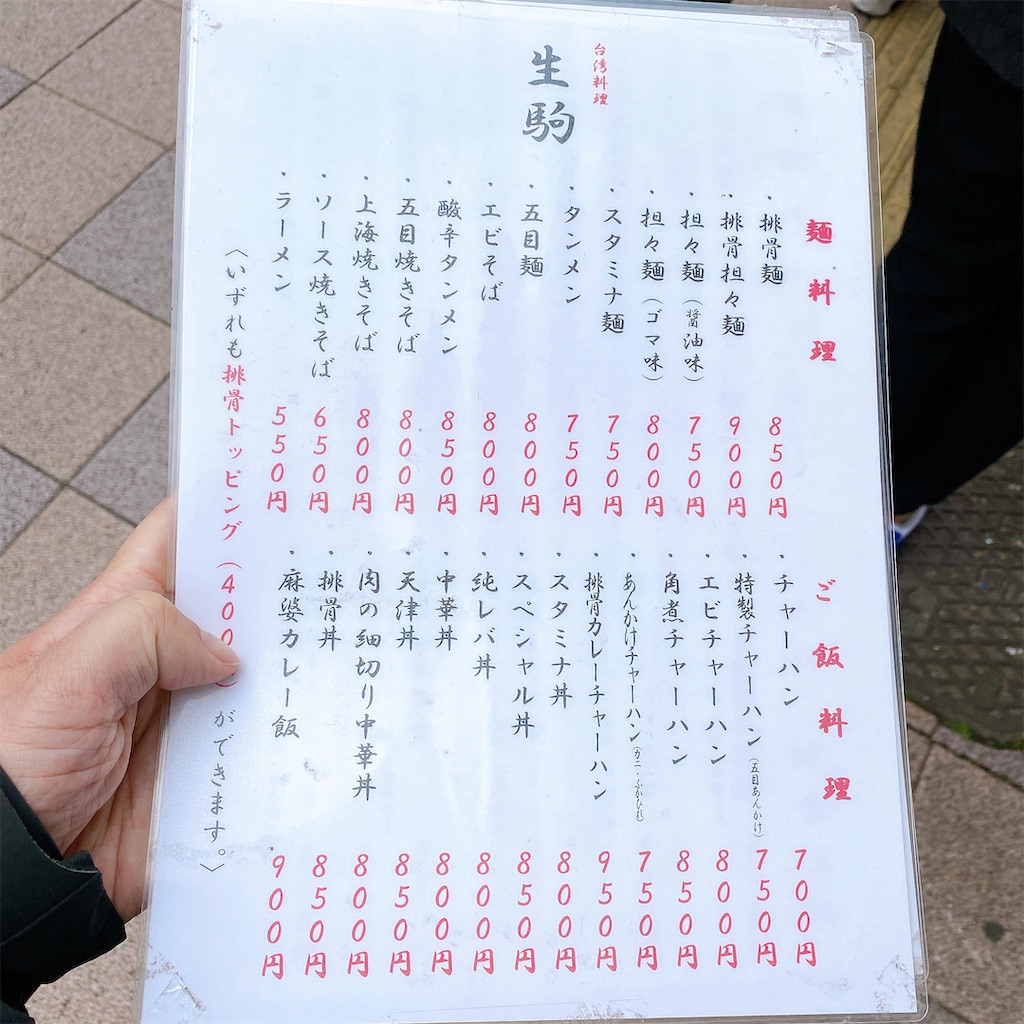 台湾料理
生駒
麺料理
・排骨麺 850円
・排骨担々麺 900円
・担々麺（醤油味） 750円
・担々麺（ゴマ味） 800円
・スタミナ麺 750円
・タンメン 750円
・五目麺 800円
・エビそば 800円
・酸辛タンメン 850円
・五目焼きそば 800円
・上海焼きそば 800円
・ソース焼きそば 650円
・ラーメン 550円
ご飯料理
・チャーハン 700円
・特製チャーハン（五目あんかけ） 750円
・エビチャーハン 800円
・角煮チャーハン 850円
・あんかけチャーハン（カニ・ふかひれ） 750円
・排骨カレーチャーハン 950円
・スタミナ丼 800円
・スペシャル丼 850円
・純レバ丼 800円
・中華丼 800円
・天津丼 850円
・肉の細切り中華丼 800円
・排骨丼 850円
・麻婆カレー飯 900円
〈いずれも排骨トッピング（400）ができます。〉